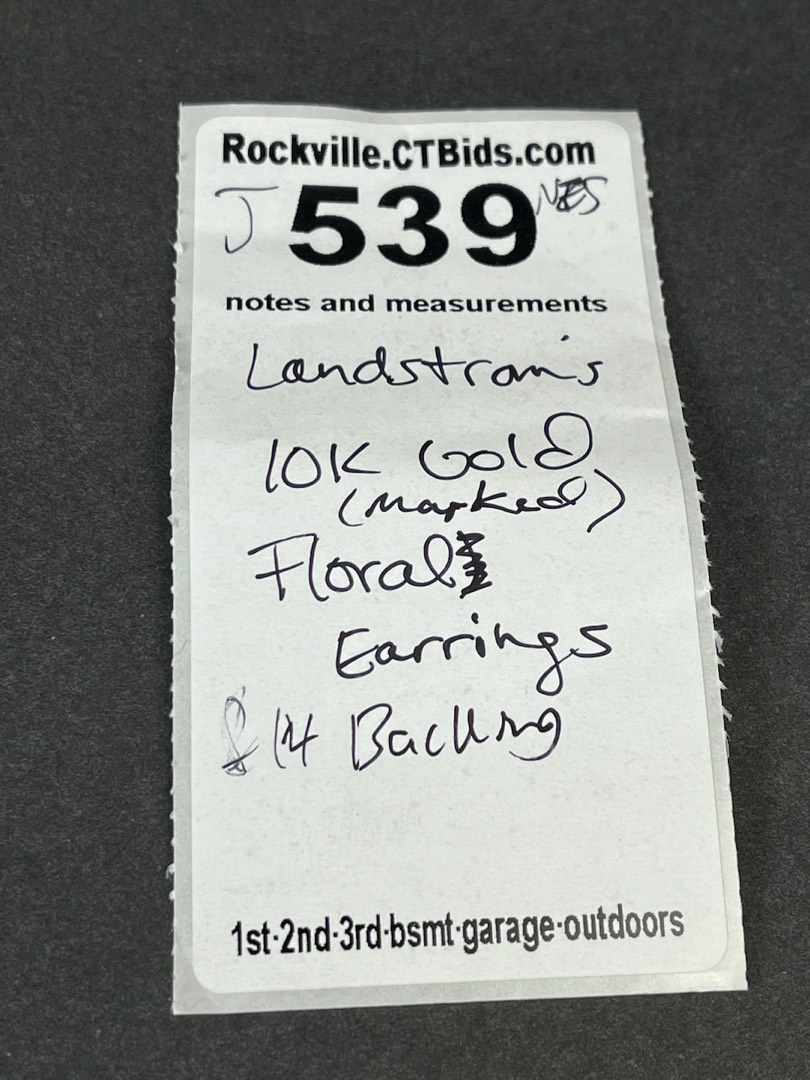 Rockville.CTBids.com
J 539
notes and measurements
Landstrom's
10K Gold
(Marked)
Floral
Earrings
& 14 Backing
1st·2nd·3rd·bsmt·garage·outdoors